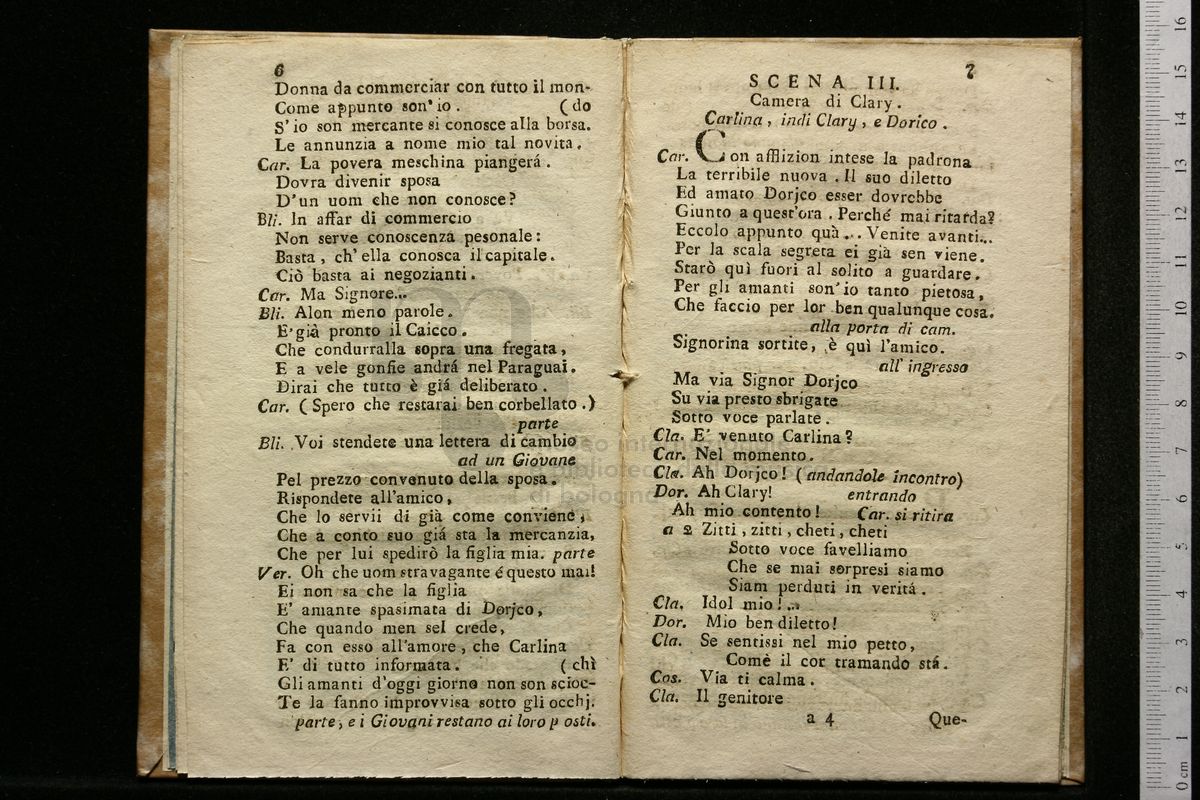 6
Donna da commerciar con tutto il mon-
Come appunto son' io . ( do
S' io son mercante si conosce alla borsa.
Le annunzia a nome mio tal novita .
Car. La povera meschina piangerá .
Dovra divenir sposa
D'un uom che non conosce?
Bli. In affar di commercio
Non serve conoscenza pesonale :
Basta , ch' ella conosca il capitale .
Ciò basta ai negozianti .
Car. Ma Signore...
Bli. Alon meno parole .
E' già pronto il Caicco .
Che condurralla sopra una fregata ,
E a vele gonfie andrá nel Paraguai .
Dirai che tutto è giá deliberato .
Car. ( Spero che restarai ben corbellato .)
parte
Bli. Voi stendete una lettera di cambio
ad un Giovane
Pel prezzo convenuto della sposa .
Rispondete all'amico ,
Che lo servii di già come conviene ,
Che a conto suo giá sta la mercanzia,
Che per lui spedirò la figlia mia. parte
Ver. Oh che uom stravagante é questo mai!
Ei non sa che la figlia
E' amante spasimata di Dorjco ,
Che quando men sel crede ,
Fa con esso all'amore , che Carlina
E' di tutto informata . ( chì
Gli amanti d'oggi giorno non son scioc-
Te la fanno improvvisa sotto gli occhj.
parte , e i Giovani restano ai loro p osti.
7
SCENA III.
Camera di Clary .
Carlina , indi Clary , e Dorico .
Car. Con afflizion intese la padrona
La terribile nuova . Il suo diletto
Ed amato Dorjco esser dovrebbe
Giunto a quest'ora . Perché mai ritarda?
Eccolo appunto quà ... Venite avanti...
Per la scala segreta ei già sen viene .
Starò quì fuori al solito a guardare .
Per gli amanti son'io tanto pietosa ,
Che faccio per lor ben qualunque cosa.
alla porta di cam.
Signorina sortite, è quì l'amico.
all' ingresso
Ma via Signor Dorjco
Su via presto sbrigate
Sotto voce parlate .
Cla. E' venuto Carlina ?
Car. Nel momento .
Cla. Ah Dorjco ! ( andandole incontro)
Dor. Ah Clary! entrando
Ah mio contento ! Car. si ritira
a 2 Zitti , zitti , cheti , cheti
Sotto voce favelliamo
Che se mai sorpresi siamo
Siam perduti in veritá .
Cla. Idol mio !...
Dor. Mio ben diletto !
Cla. Se sentissi nel mio petto ,
Comè il cor tramando stá .
Cos. Via ti calma .
Cla. Il genitore
a 4 Que-